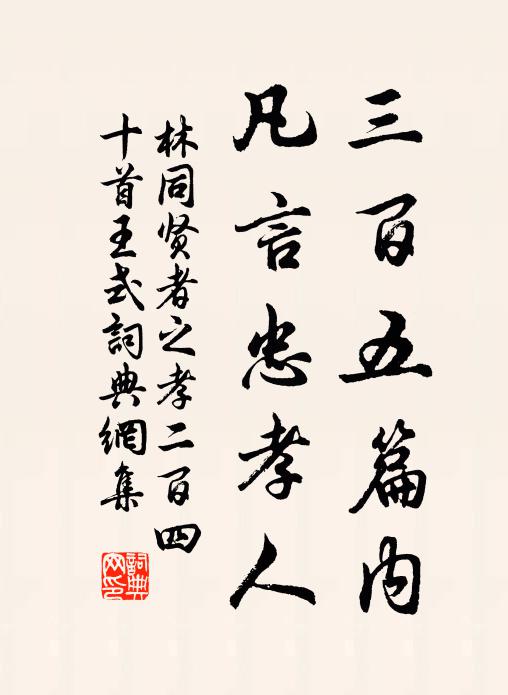 三百五篇内
凡言忠孝人
林同贤者之孝二百四
十首王式詞典網集
詞典网印